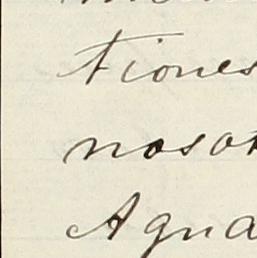 tiones
noso
Agua